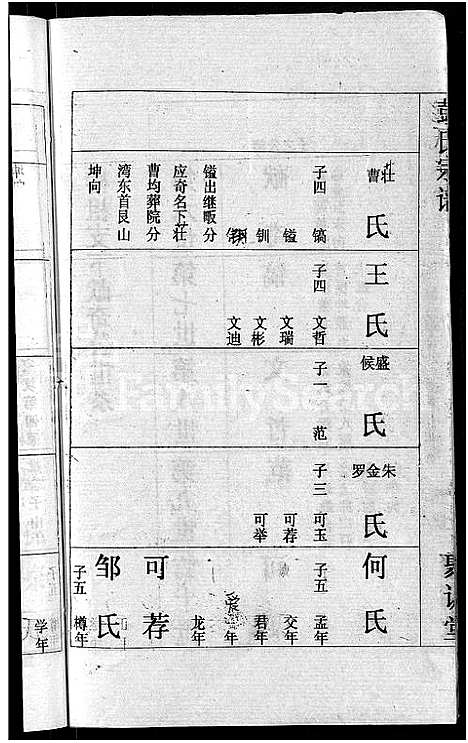 彭氏宗谱
壮曹
氏
子四
镐
镒
钏
镒出继暇分
应奇名下壮
曹均葬院分
湾东首艮山
坤向
王氏
子四
文哲
文瑞
文彬
文迪
盛候
氏
子一
范
朱金罗
氏
子三
可玉
可荐
可举
何氏
子五
孟年
交年
君年
年
龙年
可荐
邹氏
子五
樽年
学年
FamilySearch